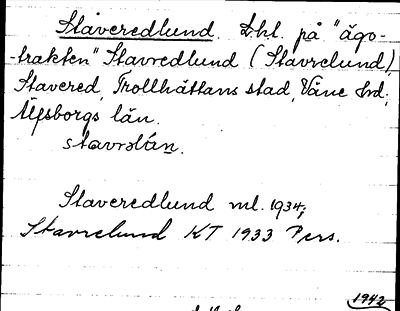 Staveredlund. Lhl. på "ägo-
-trakten" Stavredlund (Stavrelund),
Stavered, Trollhättans stad, Väne hd;
Älfsborgs län.
stavrəlán.
Staveredlund ml. 1934;
Stavrelund KT 1933 Pers.
1942